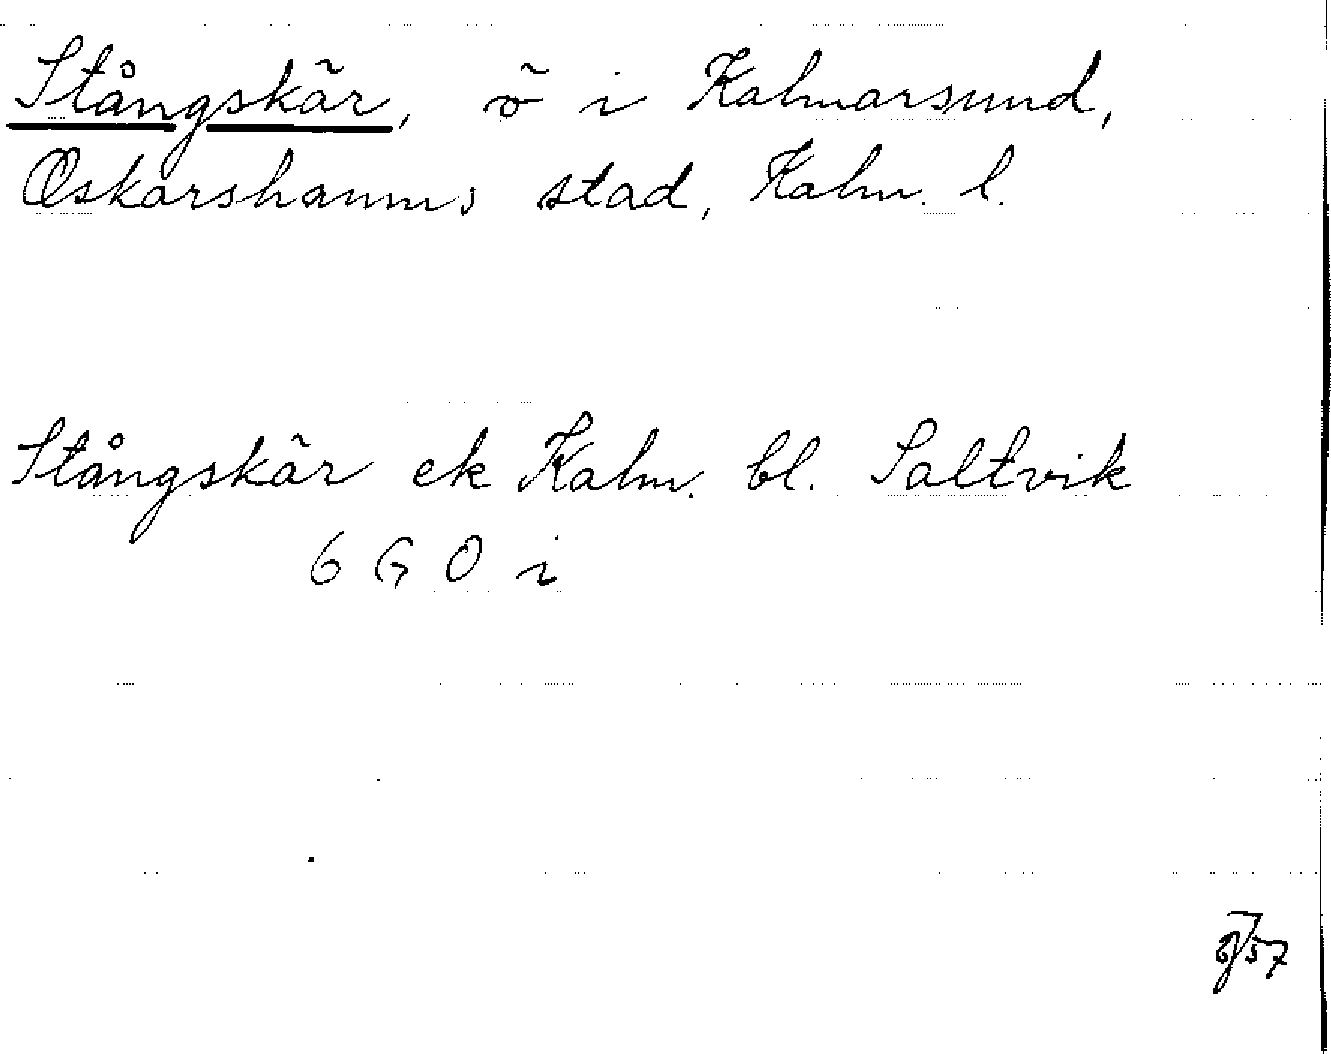 Stångskär, ö i Kalmarsund,
Oskarshamns stad, Kalm. l.
Stångskär ek Kalm. bl. Saltvik
6 G 0 i